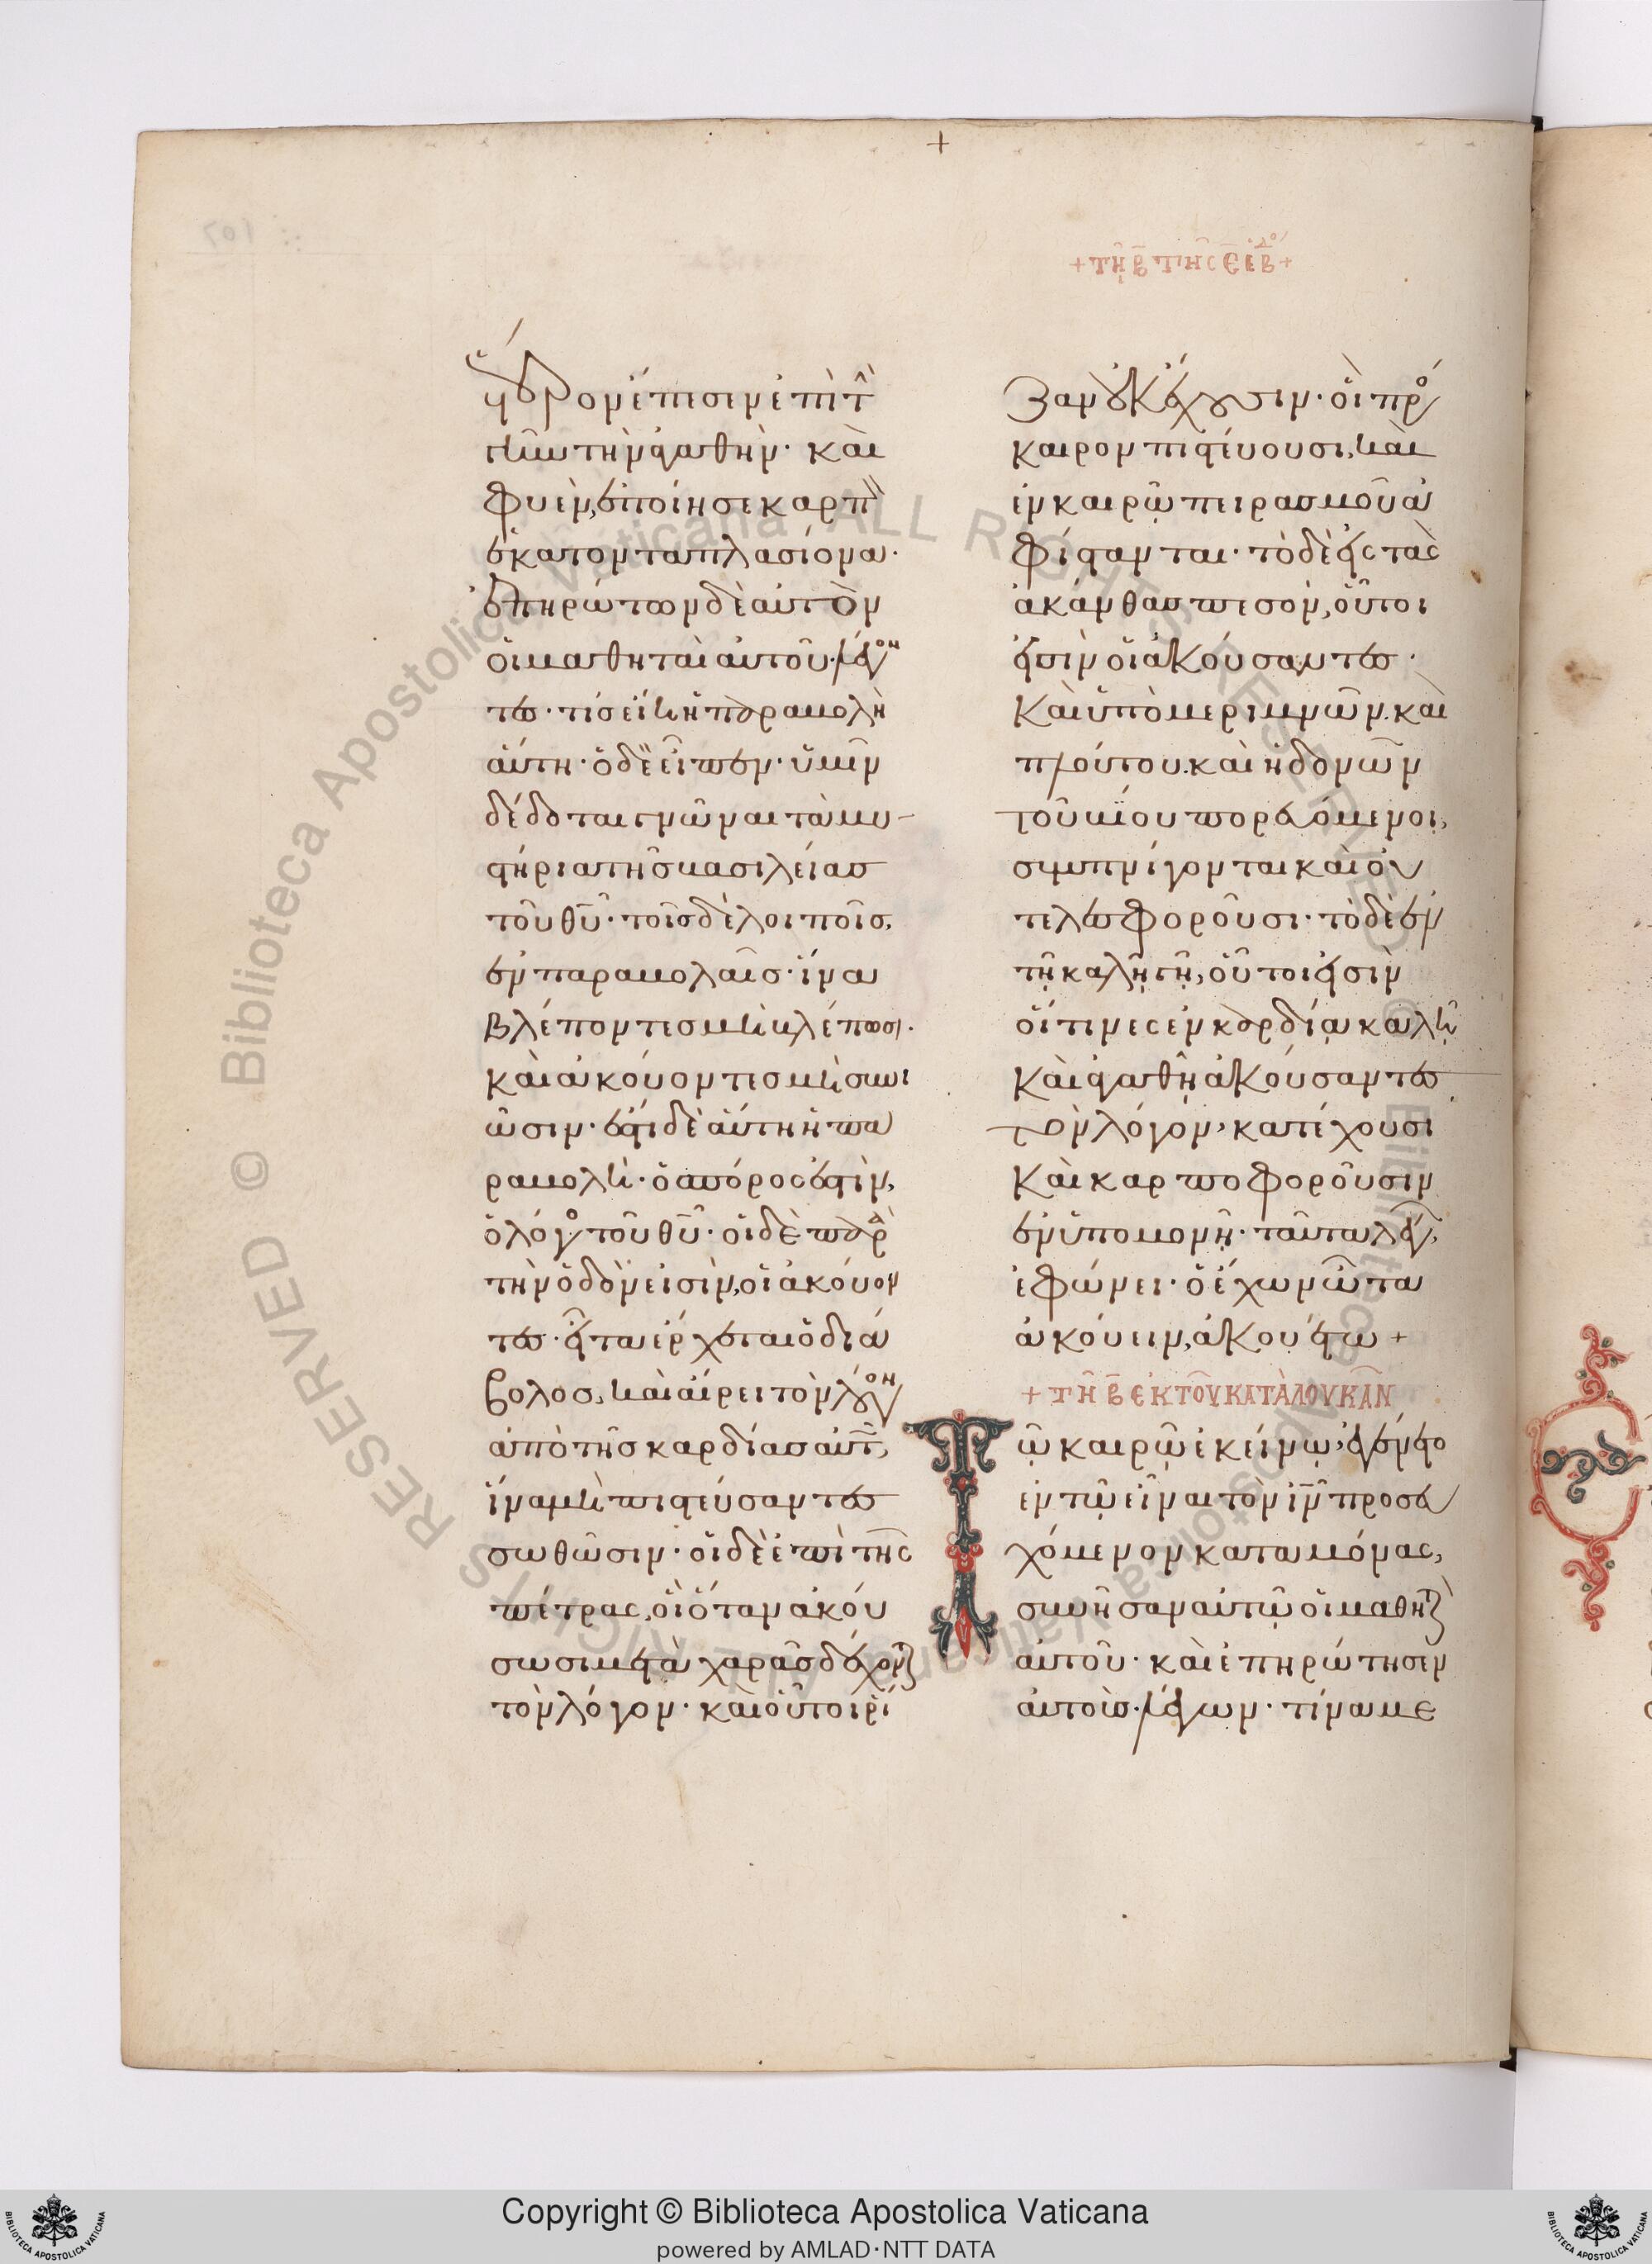 + τῇ β τῆς ε ε̇β +
ἕτερον ἔπεσεν ἐπὶ τ(ὴν)
γῆν τὴν ἀγαθὴν· καὶ
φυὲν, ἐποίησε καρπὸν
ἑκατονταπλασίονα·
ἐπηρώτων δὲ αὐτὸν
οἱ μαθηταὶ αὐτοῦ· λέγον
τες· τίς εἴη ἡ παραβολὴ
αὕτη· ὁ δὲ εἶπεν· ὑμῖν
δέδοται γνῶναι τὰ μυ
στήρια τῆς βασιλείας
τοῦ θυ· τοῖς δὲ λοιποῖς,
ἐν παραβολαῖς· ἵνα
βλέποντες μὴ βλέπωσι·
καὶ ἀκούοντες μὴ συνι
ῶσιν· ἔστι δὲ αὕτη ἡ πα
ραβολή· ὁ σπόρος ἐστὶν,
ὁ λόγος τοῦ θυ· οἱ δὲ παρὰ
τὴν ὁδὸν εἰσὶν, οἱ ἀκούον
τες· εἶτα ἔρχεται ὁ διά
βολος, καὶ αἴρει τὸν λόγον
ἀπὸ τῆς καρδίας αὐτῶν,
ἵνα μὴ πιστεύσαντες
σωθῶσιν· οἱ δὲ ἐπὶ τῆς
πέτρας, οἳ ὅταν ἀκού
σωσι μετὰ χαρᾶς δέχονται
τὸν λόγον· καὶ οὗτοι ῥί
ζαν οὐκ ἔχουσιν· οἳ πρὸς
καιρὸν πιστεύουσι, καὶ
ἐν καιρῷ πειρασμοῦ ἀ
φίστανται· τὸ δὲ εἰς τὰς
ἀκάνθας πεσὸν, οὗτοι
εἰσὶν οἱ ἀκούσαντες·
καὶ ὑπὸ μεριμνῶν· καὶ
πλούτου· καὶ ἡδονῶν
τοῦ βίου πορευόμενοι,
συμπνίγονται καὶ οὐ
τελεσφοροῦσι· τὸ δὲ ἐν
τῇ καλῇ γῇ, οὗτοι εἰσὶν
οἵτινες ἐν καρδίᾳ καλῇ
καὶ ἀγαθῇ ἀκούσαντες
τὸν λόγον, κατέχουσι
καὶ καρποφοροῦσιν
ἐν ὑπομονῇ· ταῦτα λέγων,
ἐφώνει· ὁ ἔχων ὦτα
ἀκούειν, ἀκουέτω +
+ τῇ β ἐκ τοῦ κατὰ λουκᾶν
Τῷ καιρῷ ἐκείνῳ, ἐγένετο
ἐν τῷ εἶναι τὸν ιν προσευ
χόμενον καταμόνας,
συνῆσαν αὐτῷ οἱ μαθηταὶ
αὐτοῦ· καὶ ἐπηρώτησεν
αὐτοὺς· λέγων· τίνα με